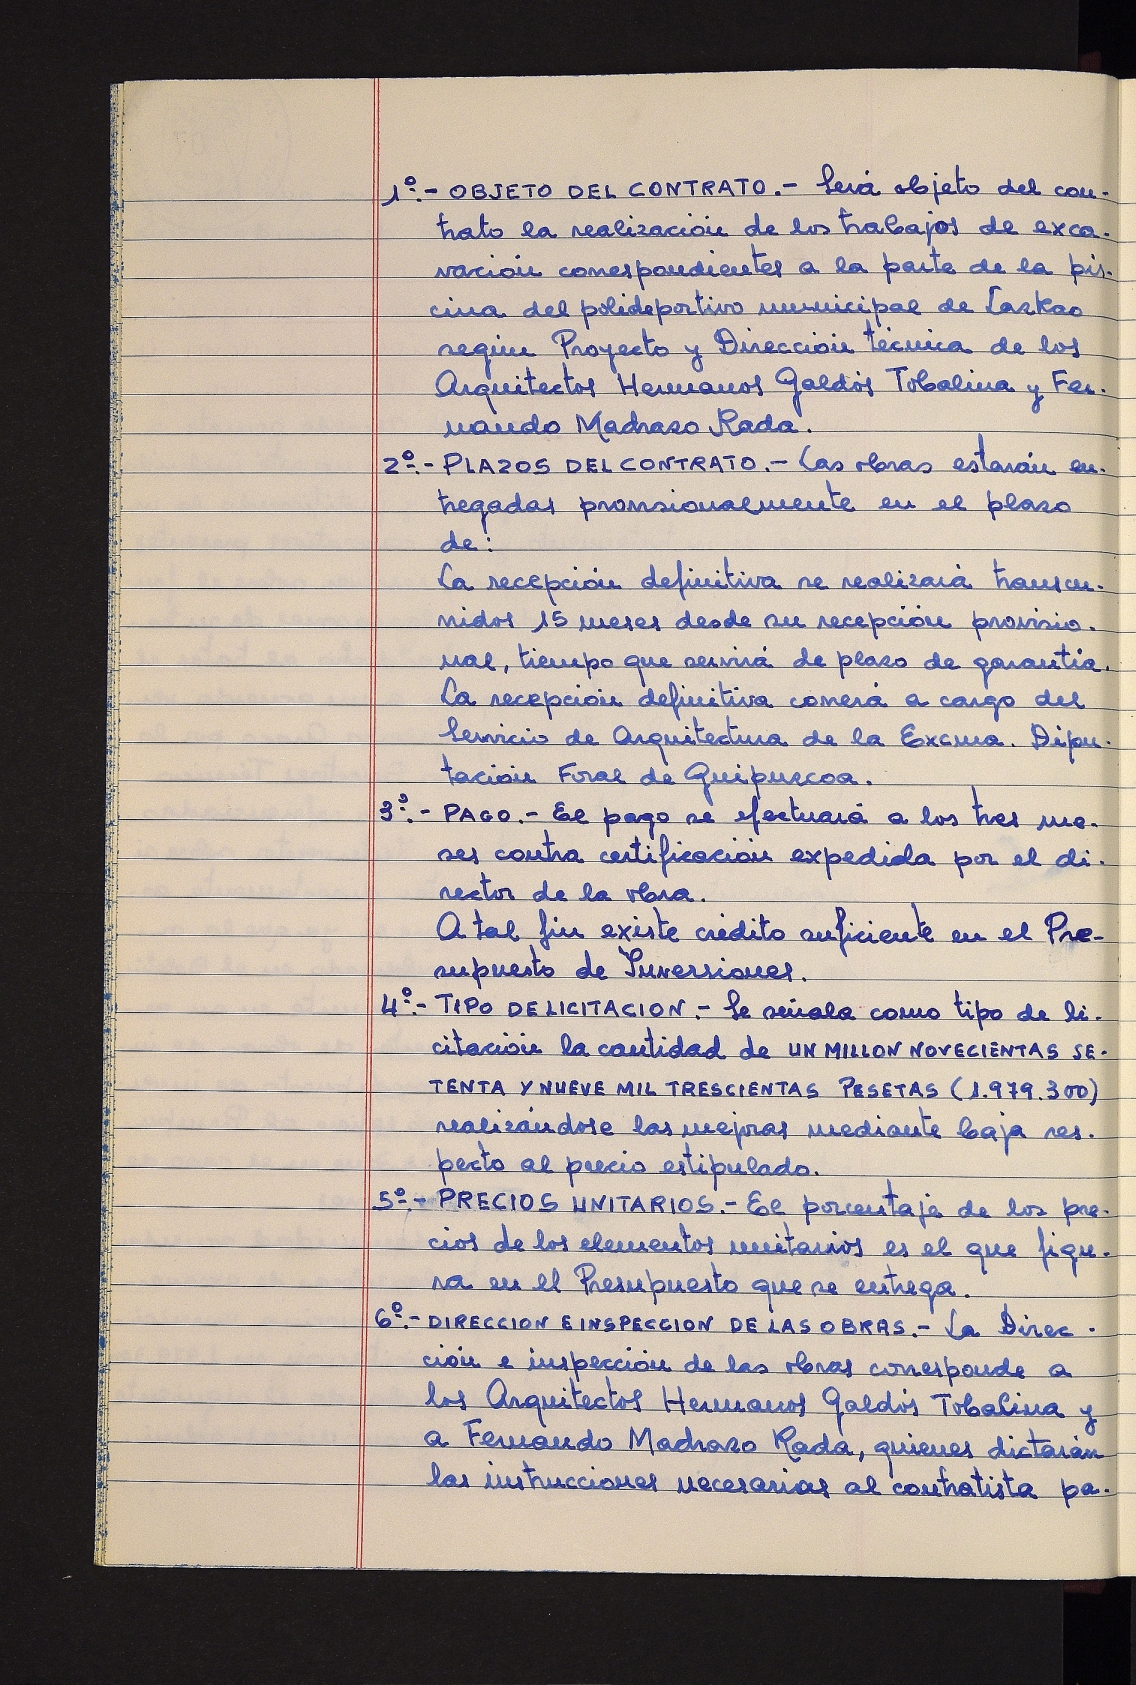 1º.- OBJETO DEL CONTRATO.- Será objeto del con-
trato la realización de los trabajos de exca-
vación correspondientes a la parte de la pis-
cina del polideportivo municipal de Lazkao
según Proyecto y Dirección técnica de los
Arquitectos Hermanos Galdós Tobalina y Fer-
nando Madrazo Rada.
2º.- PLAZOS DEL CONTRATO.- Las obras estarán en-
tregadas provisionalmente en el plazo
de:
La recepción definitiva se realizará transcu-
rridos 15 meses desde su recepción provisio-
nal, tiempo que servirá de plazo de garantía.
La recepción definitiva correrá a cargo del
Servicio de Arquitectura de la Excma. Dipu-
tación Foral de Guipuzcoa.
3º.- PAGO.- El pago se efectuará a los tres me-
ses contra certificación expedida por el di-
rector de la obra.
A tal fin existe crédito suficiente en el Pre-
supuesto de Inversiones.
4º.- TIPO DE LICITACION.- Se señala como tipo de li-
citación la cantidad de UN MILLON NOVECIENTAS SE-
TENTA Y NUEVE MIL TRESCIENTAS PESETAS (1.979.300)
realizándose las mejoras mediante baja res-
pecto al precio estipulado.
5º.- PRECIOS UNITARIOS.- El porcentaje de los pre-
cios de los elementos unitarios es el que figu-
ra en el Presupuesto que se entrega.
6º.- DIRECCION E INSPECCION DE LAS OBRAS.- La Direc-
ción e inspección de las obras corresponde a
los Arquitectos Hermanos Galdós Tobalina y
a Fernando Madrazo Rada, quienes dictarán
las instrucciones necesarias al contratista pa-